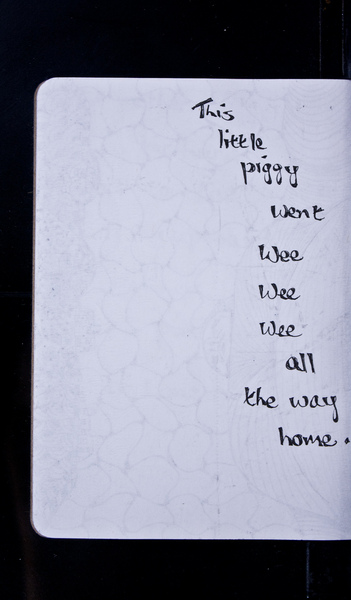 This
little
piggy
went
Wee
Wee
Wee
all
the way
home.